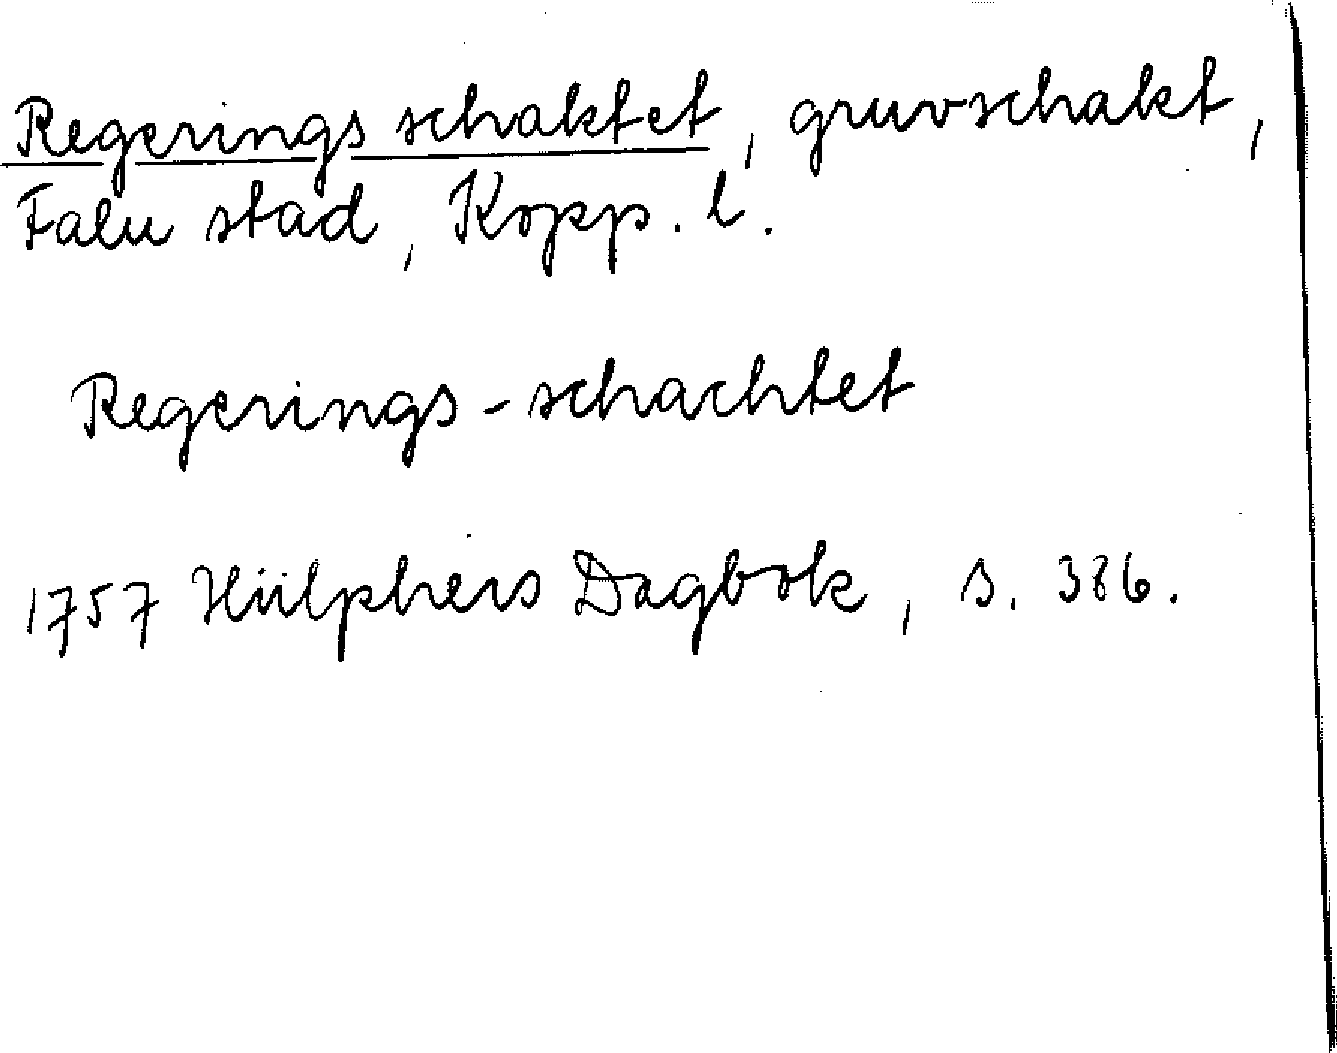 Regerings schaktet, gruvschakt,
Falu stad, Kopp. l.
Regerings-schachtet
1757 Hülphers Dagbok, s. 386.